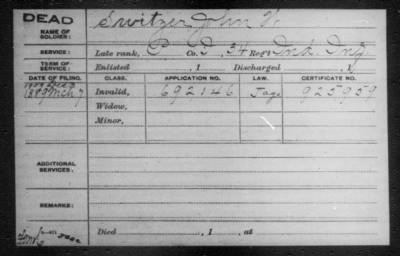 DEAD
NAME OF SOLDIER: Switzer John
SERVICE: Late rank, P Co. I, 34 Reg't Ind. Inf
TERM OF SERVICE: Enlisted , 1 Discharged , 1
DATE OF FILING. CLASS. APPLICATION NO. LAW. CERTIFICATE NO.
1889 Mch 7 Invalid, 692146 925959
Widow,
Minor,
ADDITIONAL SERVICES:
REMARKS:
Died , 1 , at